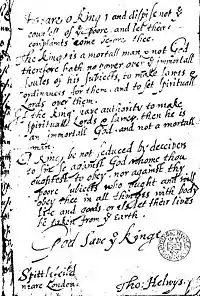 Heare o King, and dispise not ye
counsell of ye poore, and let their
complaints come before thee.
The King is a mortall man, & not God
therefore hath no power over ye immortall
soules of his subiects, to make lawes &
ordinances for them, and to set spirituall
Lords over them.
If the King have authority to make
spirituall Lords & lawes, then he is
an immortall God, and not a mortall
man.
O King, be not seduced by deceivers
to sin against God whome thou
oughtest to obey, nor against thy
poore subiects who ought and will
obey thee in all thinges with body
life and goods, or els let their lives
be taken from ye earth.
God save ye King
Spittlefeild
neare London.
Tho: Helwys.